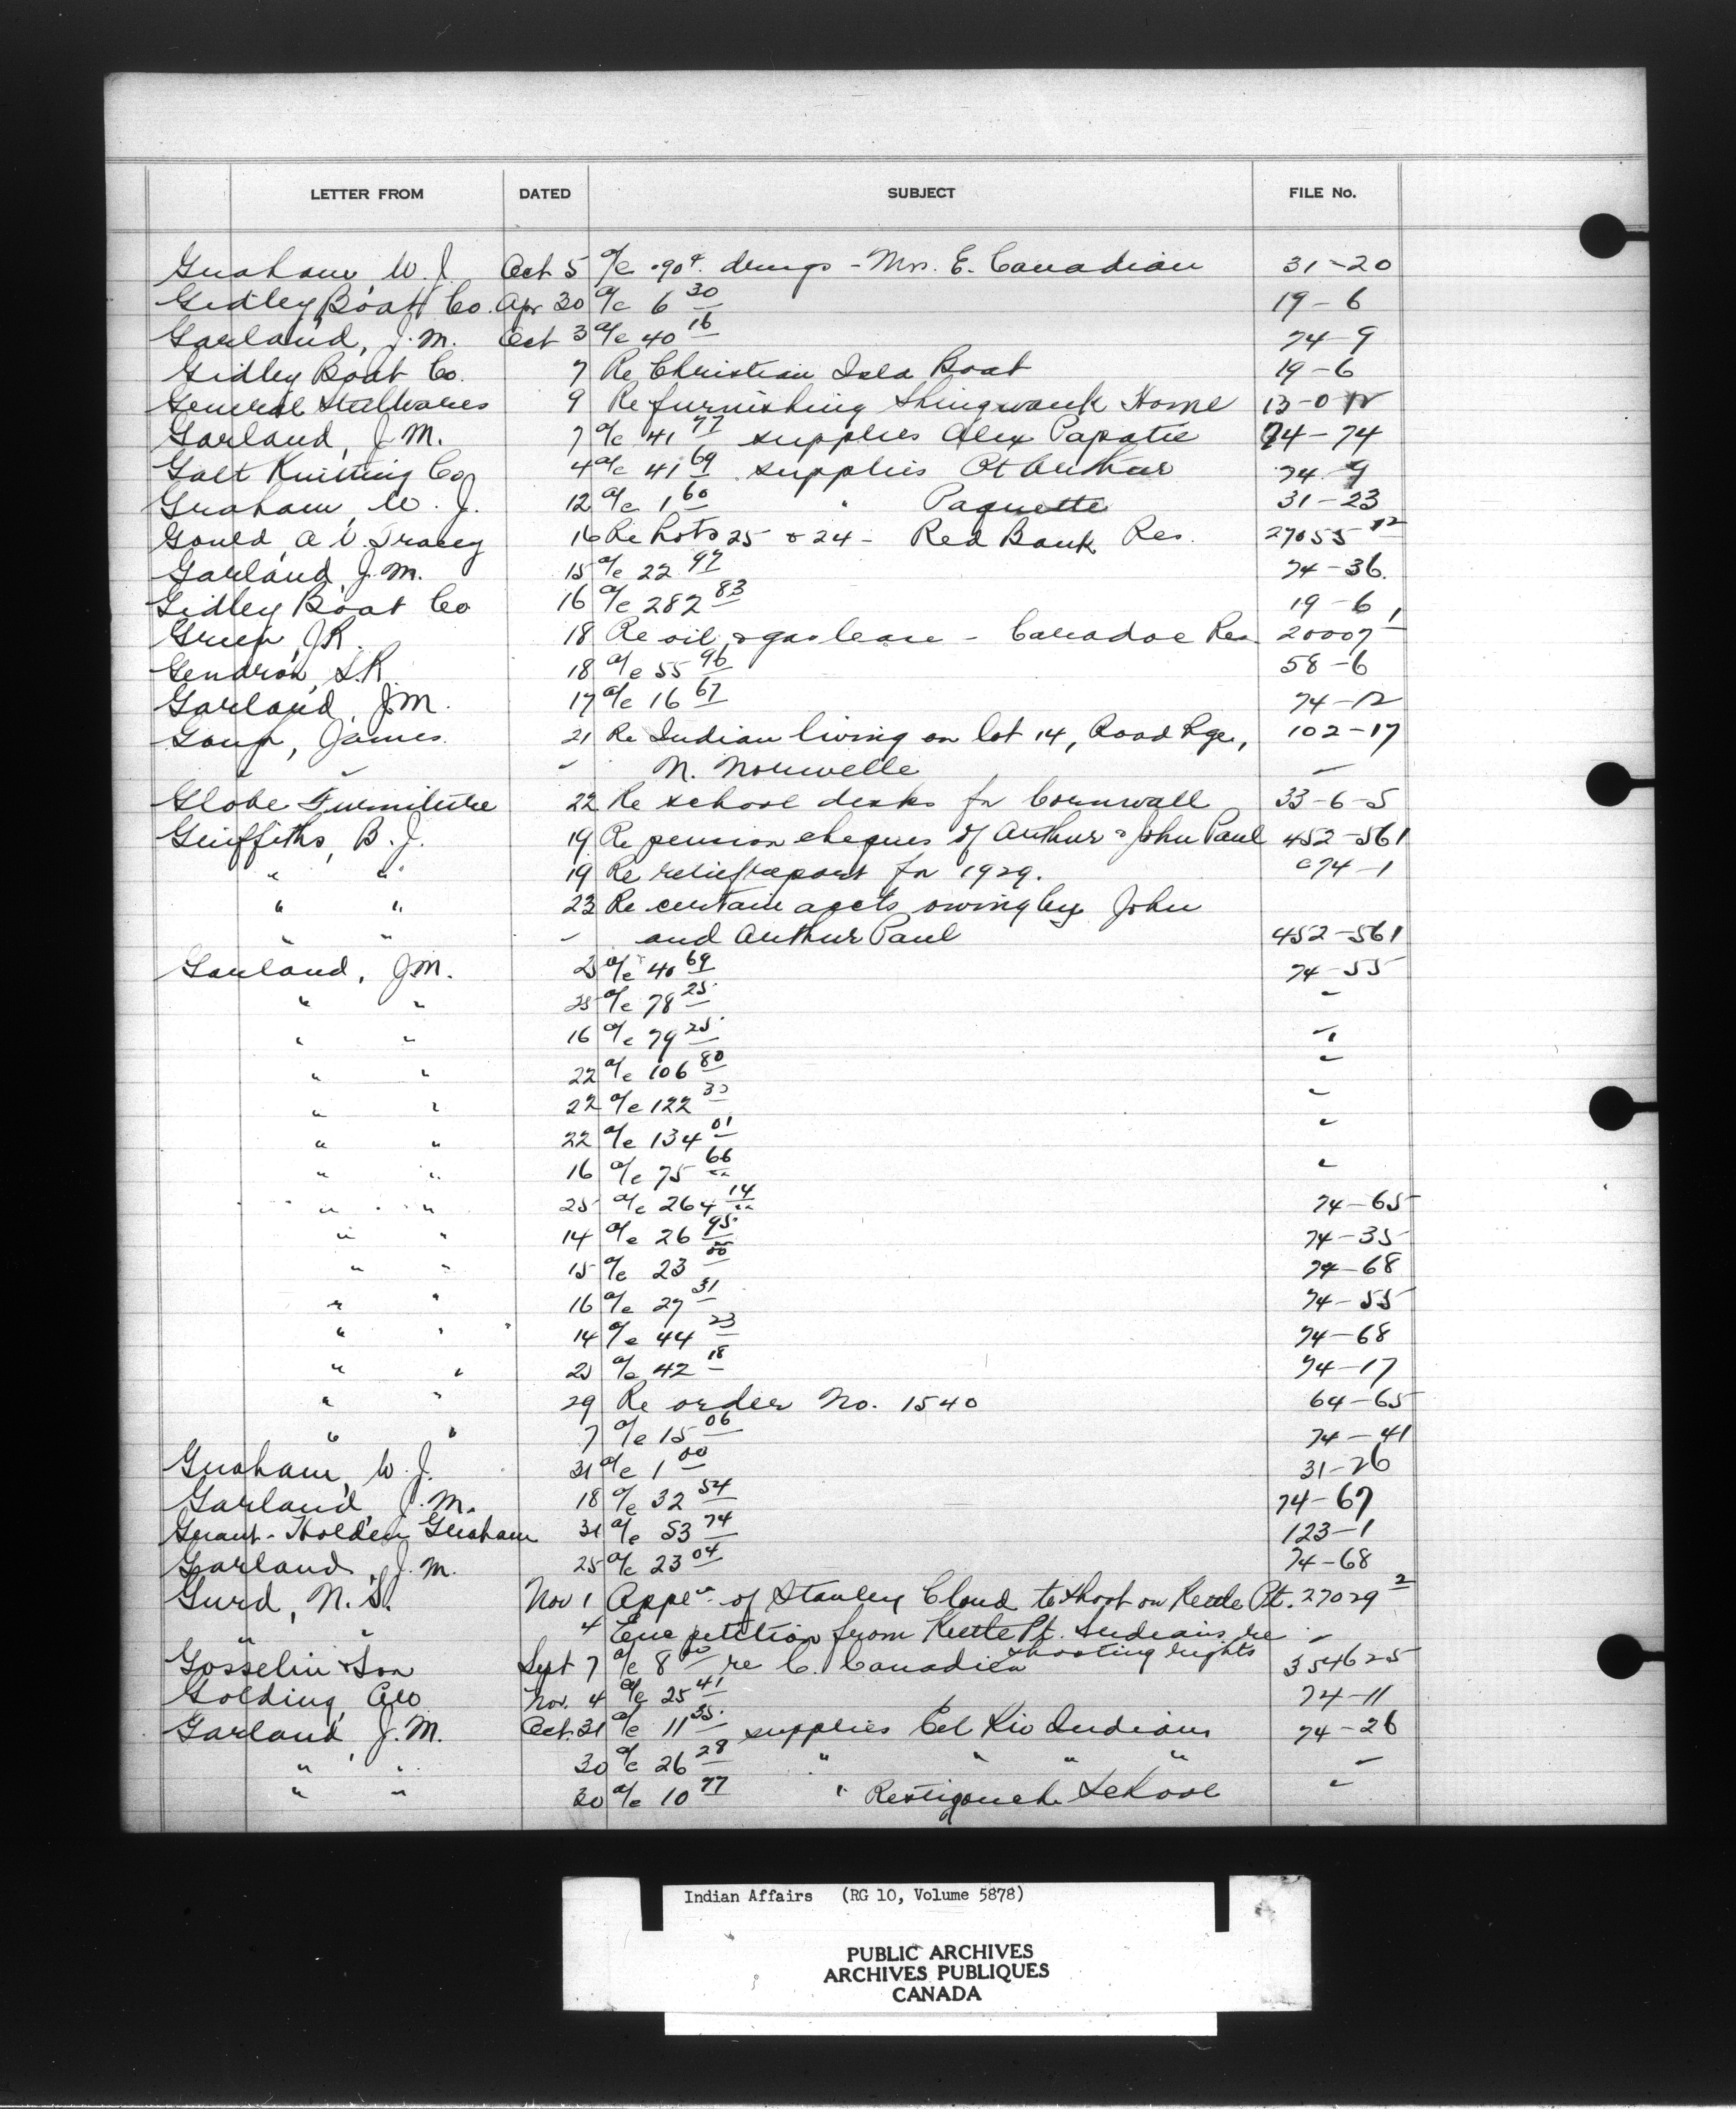 LETTER FROM DATED SUBJECT FILE No.
Graham, W. J. Oct 5 a/c .90¢ drugs - Mrs. E. Canadian 31-20
Gidley Boat Co. Apr 30 a/c 6 30 19-6
Garland, J. M. Oct 3 a/c 40 16 74-9
Gidley Boat Co. 7 Re Christian Isld Boat 19-6
General Steelwares 9 Re furnishing Shingwauk Home 13-0
Garland, J. M. 7 a/c 41 77 supplies Alex Papatie 74-74
Galt Knitting Co 4 a/c 41 69 supplies Pt Arthur 74-9
Graham, W. J. 12 a/c 1 60 " Paquette 31-23
Gould, A V. Tracey 16 Re Lots 25 & 24 - Red Bank Res. 27055-12
Garland, J. M. 15 a/c 22 97 74-36.
Gidley Boat Co 16 a/c 282 83 19-6
Green, J R. 18 Re oil & gas lease - Caradoc Res 20007
Gendron, S. R. 18 a/c 55 96 58-6
Garland, J. M. 17 a/c 16 67 74-12
James 21 Re Indian living on lot 14, Road Rge, 102-17
" " " N. "
Globe Furniture 22 Re school desks for Cornwall 33-6-5
Griffiths, B. J. 19 Re pension cheques of Arthur & John Paul 452-561
" " 19 Re relief report for 1929. 74-1
" " 23 Re certain accts owing by John
" " " and Arthur Paul 452-561
Garland, J. M. 25 a/c 40 69 74-55
" " 25 a/c 78 25 "
" " 16 a/c 79 25 "
" " 22 a/c 106 80 "
" " 22 a/c 122 30 "
" " 22 a/c 134 01 "
" " 16 a/c 75 66 "
" " 25 a/c 264 14 74-65
" " 14 a/c 26 95 74-35
" " 15 a/c 23 00 74-68
" " 16 a/c 27 31 74-55
" " 14 a/c 44 23 74-68
" " 25 a/c 42 18 74-17
" " 29 Re order No. 1540 64-65
" " 7 a/c 15 06 74-41
Graham, W. J. 31 a/c 1 00 31-26
Garland, J. M. 18 a/c 32 54 74-67
Grant-Holden Graham 31 a/c 53 74 123-1
Garland, J. M. 25 a/c 23 04 74-68
Gurd, N. S. Nov 1 Appn of Stanley Cloud to shoot on Kettle Pt. 27029-2
" " 4 Enc petition from Kettle Pt. Indians re "
shooting rights
Gosselin & Son Sept 7 a/c 8 00 re C. Canadien 354625
Golding, Geo Nov. 4 a/c 25 41 74-11
Garland, J. M. Oct. 31 a/c 11 35 supplies Eel Riv Indians 74-26
" " 30 a/c 26 28 " " " " "
" " 30 a/c 10 77 " Restigouche School "
Indian Affairs (RG 10, Volume 5878)
PUBLIC ARCHIVES
ARCHIVES PUBLIQUES
CANADA